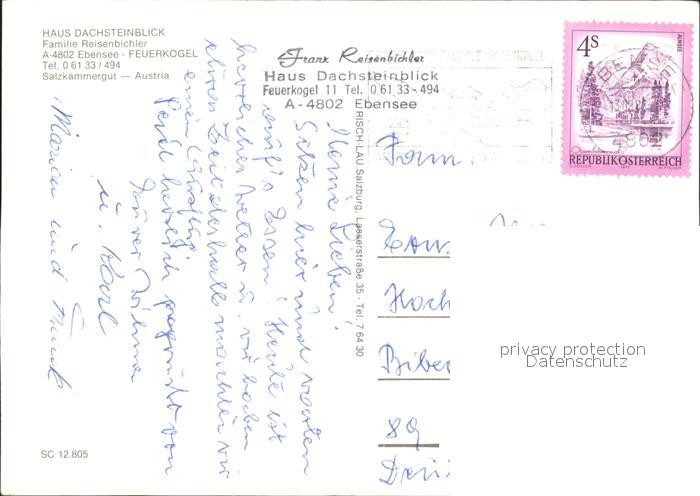 HAUS DACHSTEINBLICK
Familie Reisenbichler
A-4802 Ebensee - FEUERKOGEL
Tel. 0 61 33 / 494
Salzkammergut — Austria
Franz Reisenbichler
Haus Dachsteinblick
Feuerkogel 11 Tel. 0 61 33 - 494
A - 4802 Ebensee
4S
ALMSEE
REPUBLIK ÖSTERREICH
4802
RISCH-LAU Salzburg, Lasserstraße 35 · Tel. 7 64 30
Meine Lieben!
Sitzen hier und warten
aufs Essen! Heute ist
herrliches Wetter u. wir haben
etwas Zeit deshalb machten wir
einen Ausflug.
Seid herzlich gegrüßt von
Eurer Wilma
u. Karl
Marien und Frank
Fam.
Hoch
Biber
89
privacy protection
Datenschutz
SC 12.805